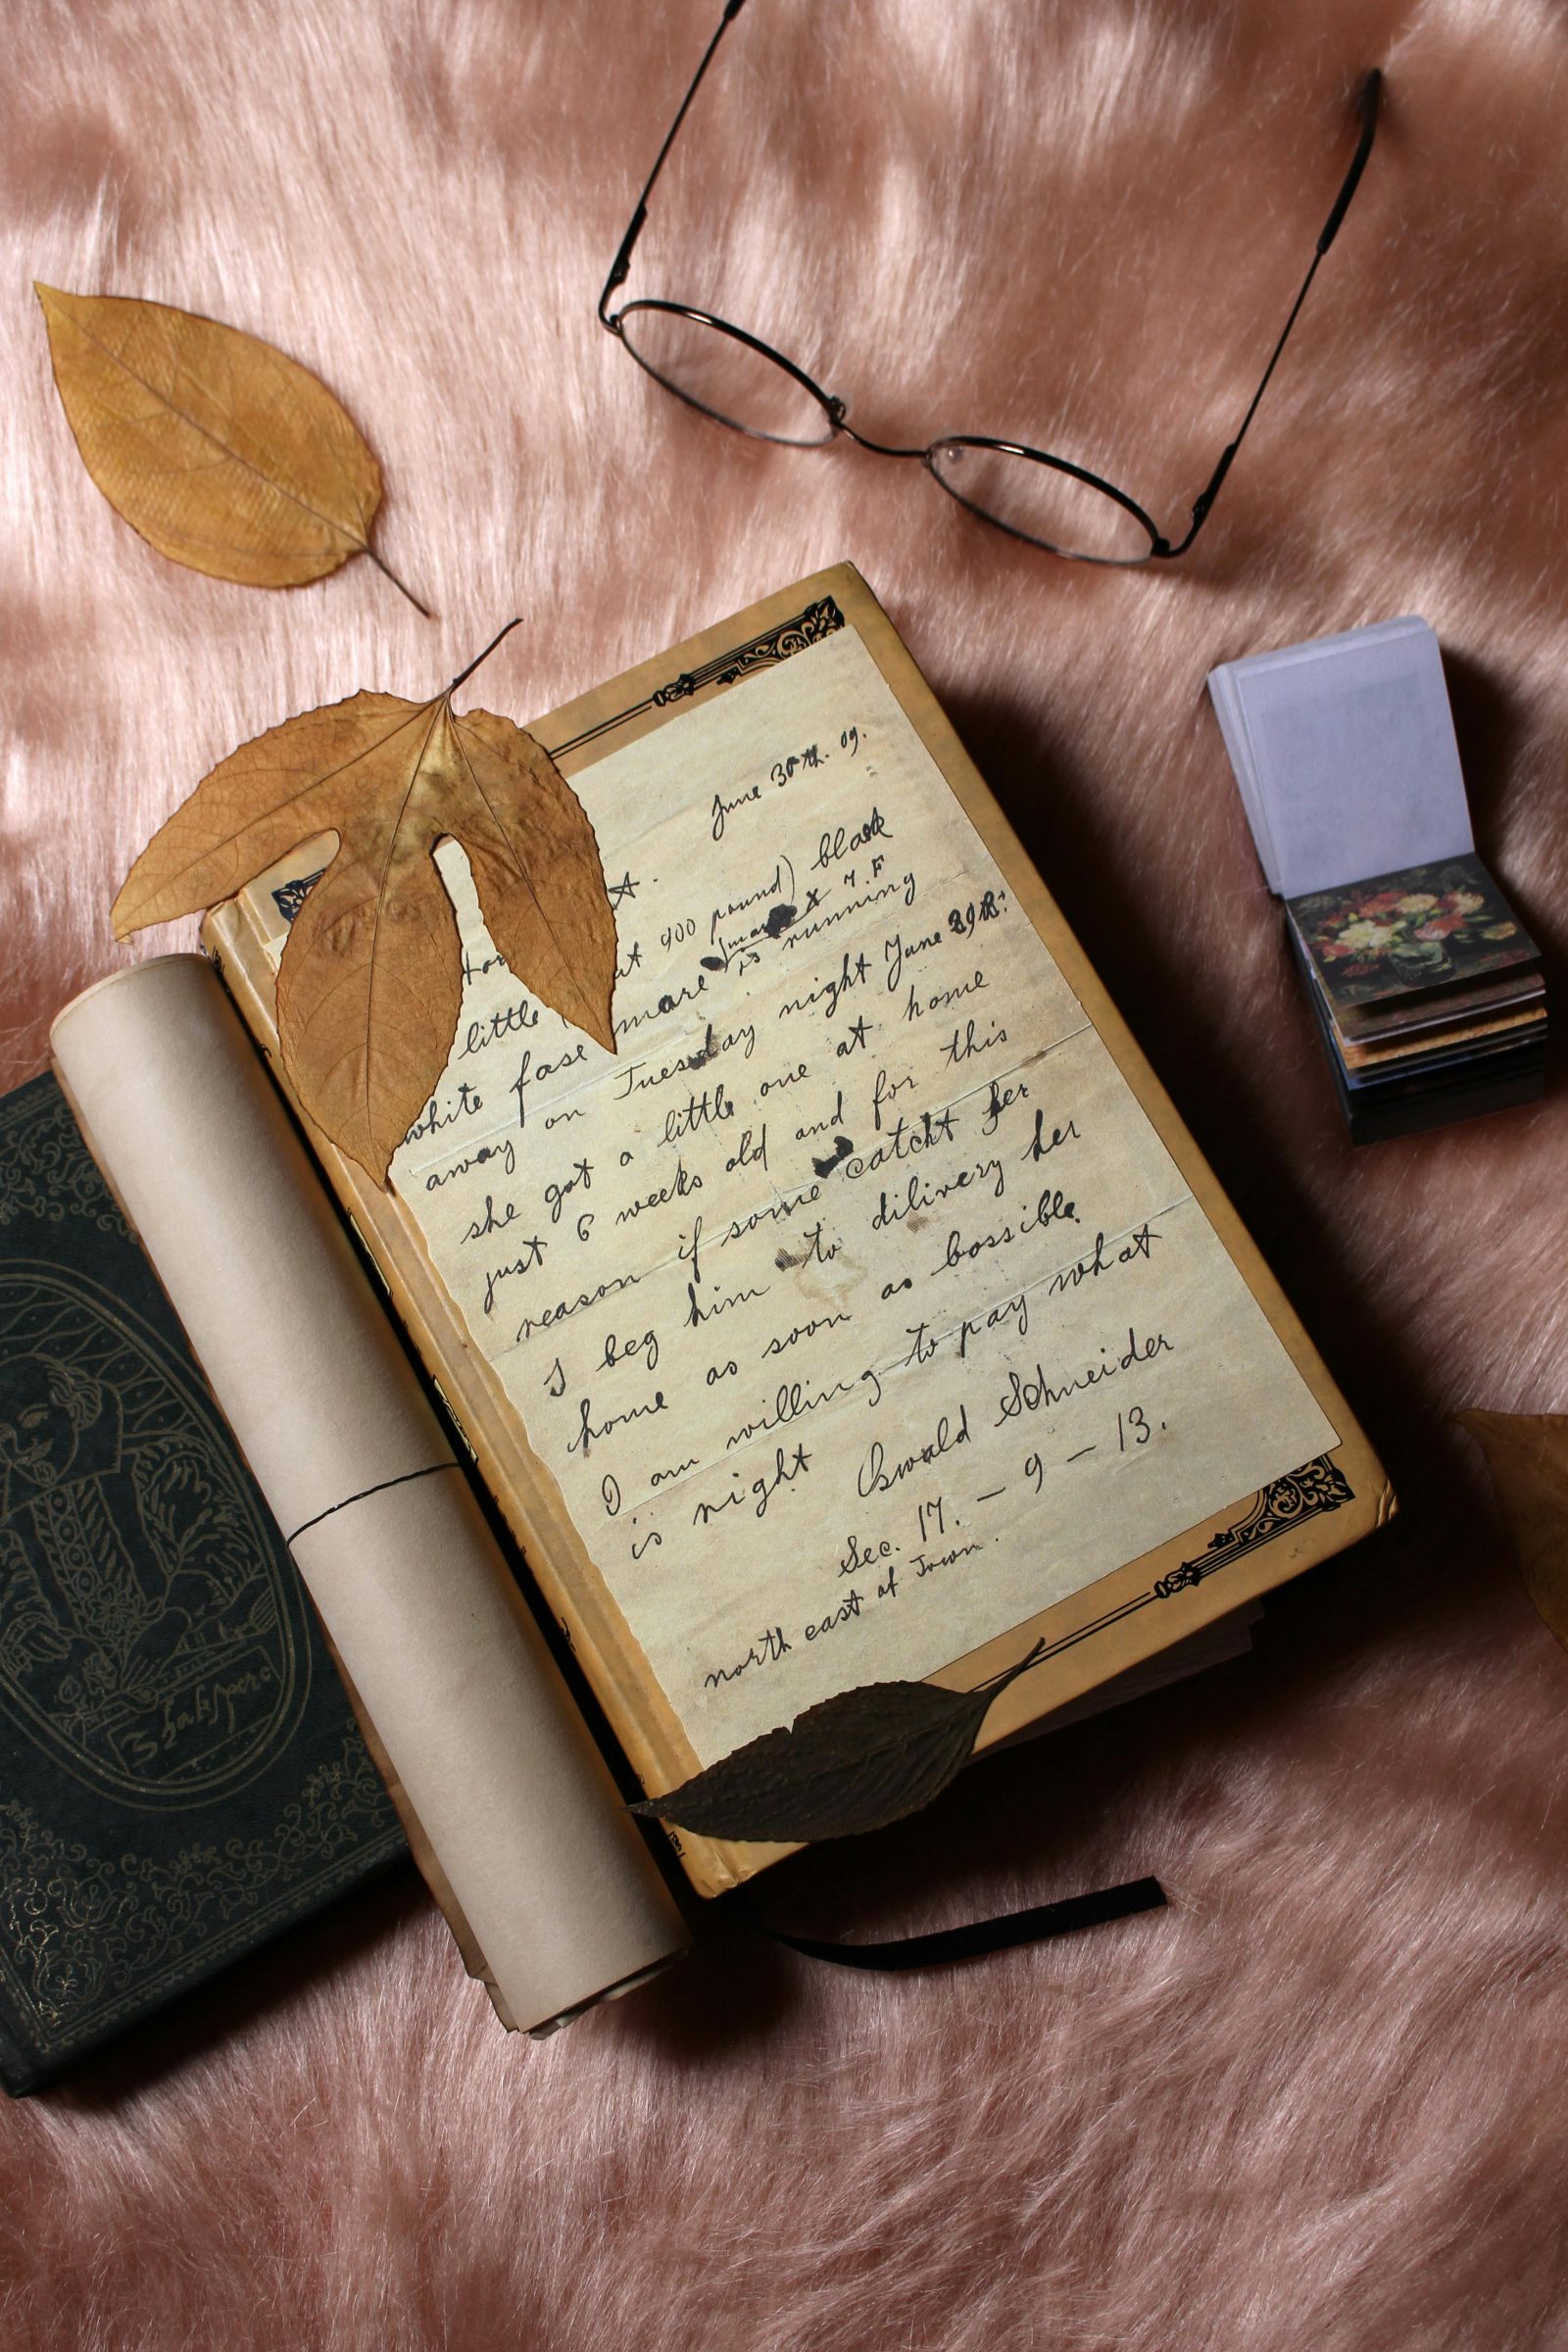 June 30th. 09.
little
900 pound) black
white fase mare is running
away on Tuesday night June 29th.
she got a little one at home
just 6 weeks old and for this
reason if some catcht her
I beg him to dilivery her
home as soon as bossible
I am willing to pay what
is right Oswald Schneider
Sec. 17. – 9 – 13.
north east of Town.